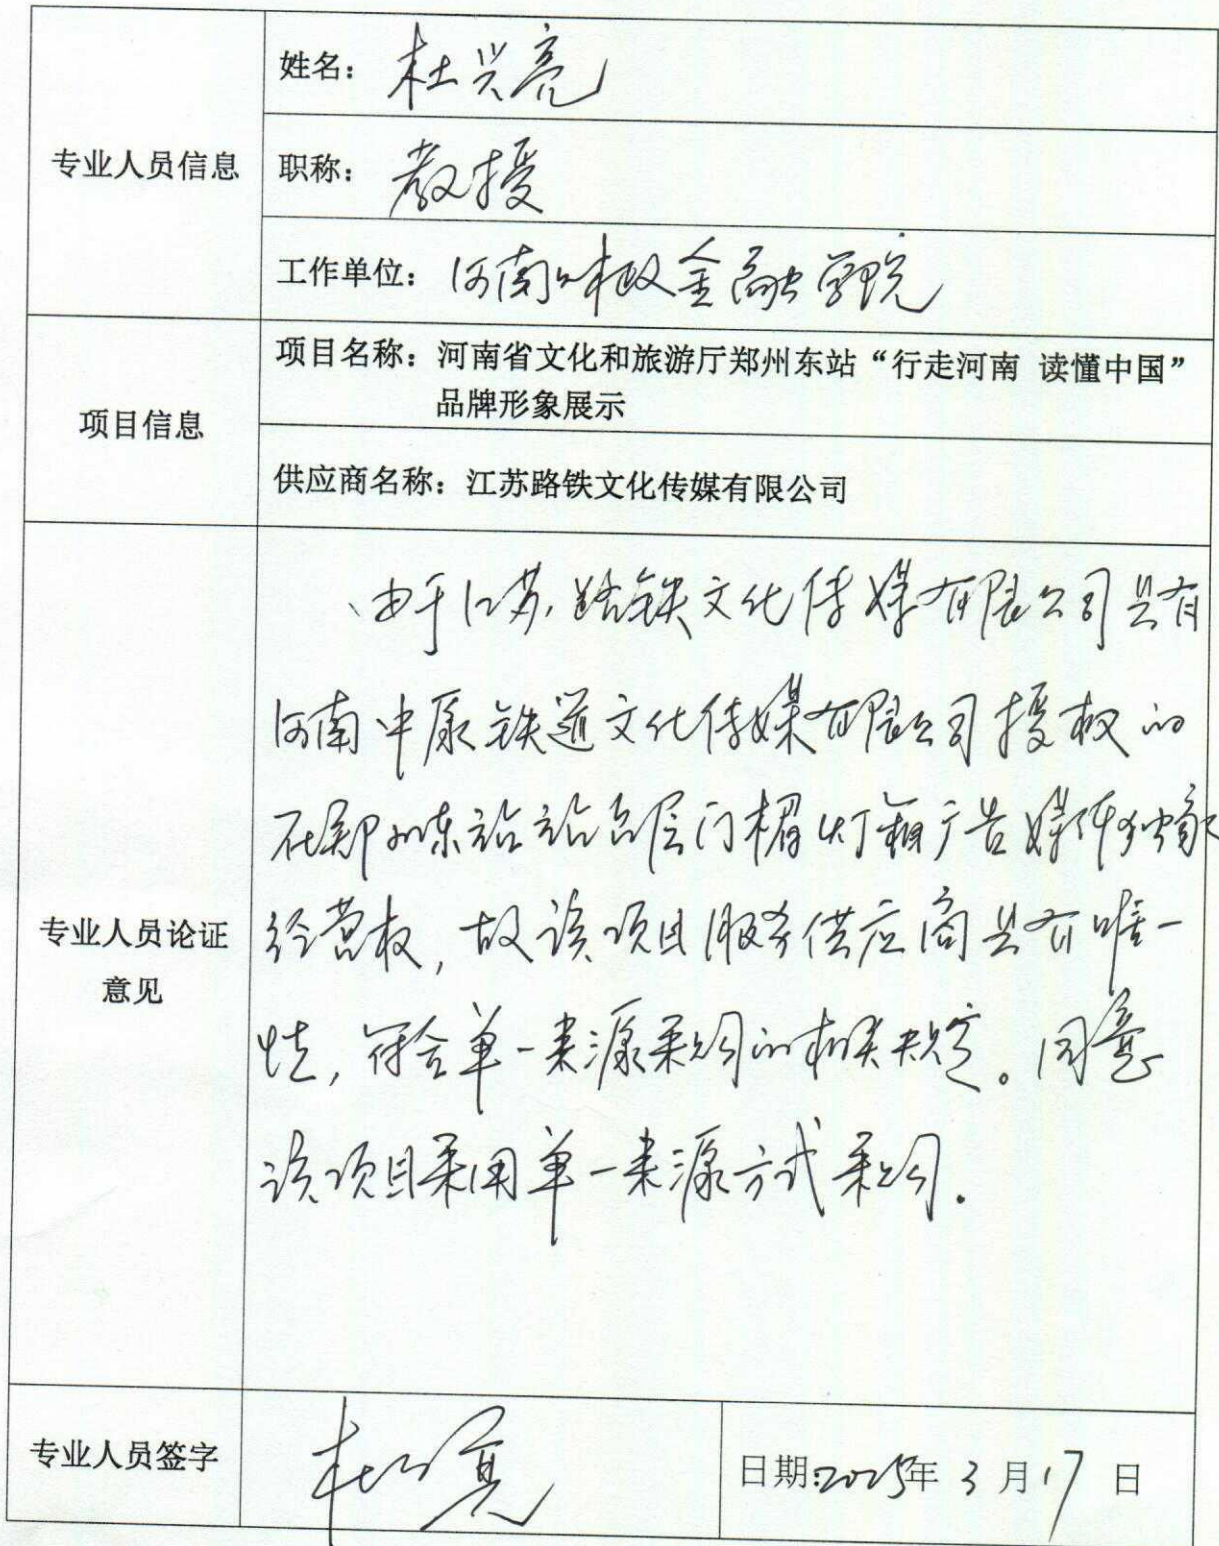 姓名：杜兴亮
专业人员信息
职称：教授
工作单位：河南财政金融学院
项目信息
项目名称：河南省文化和旅游厅郑州东站“行走河南 读懂中国”
品牌形象展示
供应商名称：江苏路铁文化传媒有限公司
专业人员论证
意见
由于江苏路铁文化传媒有限公司具有
河南中原铁道文化传媒有限公司授权的
在郑州东站站台层门楣灯箱广告媒体独家
经营权，故该项目服务供应商具有唯一
性，符合单一来源采购的相关规定。同意
该项目采用单一来源方式采购。
专业人员签字
杜兴亮
日期：2025年3月17日